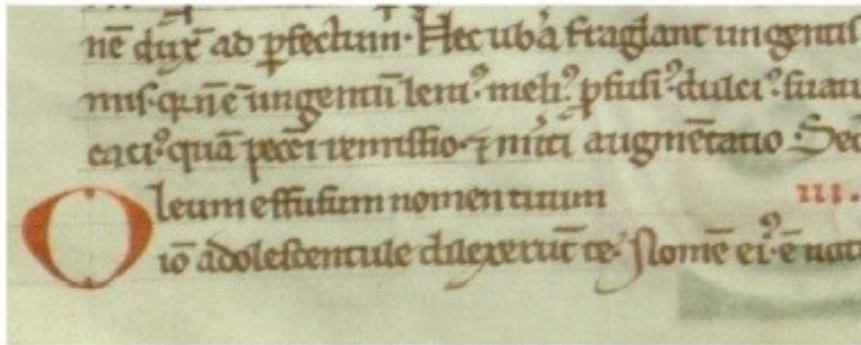 nē dux̄ ad ꝑfectum· Hec uba fraglant ungentis
mis· qꝛ nē ungentū leniꝰ· meliꝰ ꝑfusiꝰ· dulciꝰ· suaui
caciꝰ quā pccī remissio· ⁊ augmētatio
Oleum effusum nomen tuum III.
iō adolescentule dilexerūt te· Nomē eiꝰ ē